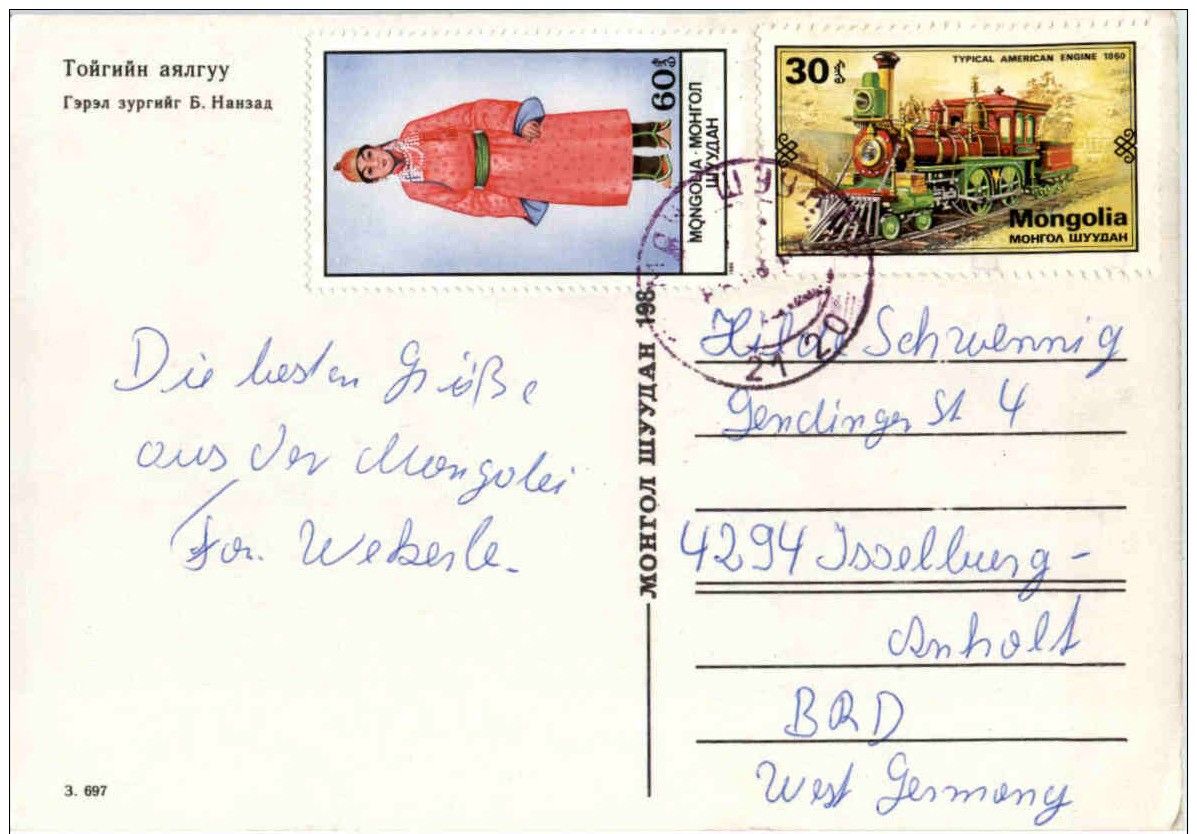 Тойгийн аялгуу
Гэрэл зургийг Б. Нанзад
60
MONGOLIA · МОНГОЛ
ШУУДАН
TYPICAL AMERICAN ENGINE 1860
30
Mongolia
МОНГОЛ ШУУДАН
21 20
Die besten Grüße
aus der Mongolei
Weberle
МОНГОЛ ШУУДАН 198
Schwennig
Gendinger St 4
4294 Isselburg-
Anholt
BRD
West Germany
З. 697